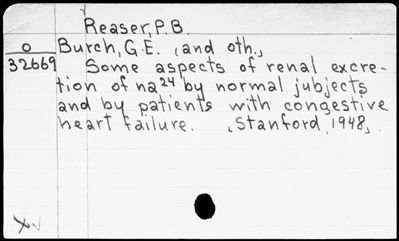 Reaser, P.B.
O Burch, G.E. (and oth.,
32669 Some aspects of renal excre-
tion of na24 by normal jubjects
and by patients with congestive
heart failure. (Stanford, 1948).